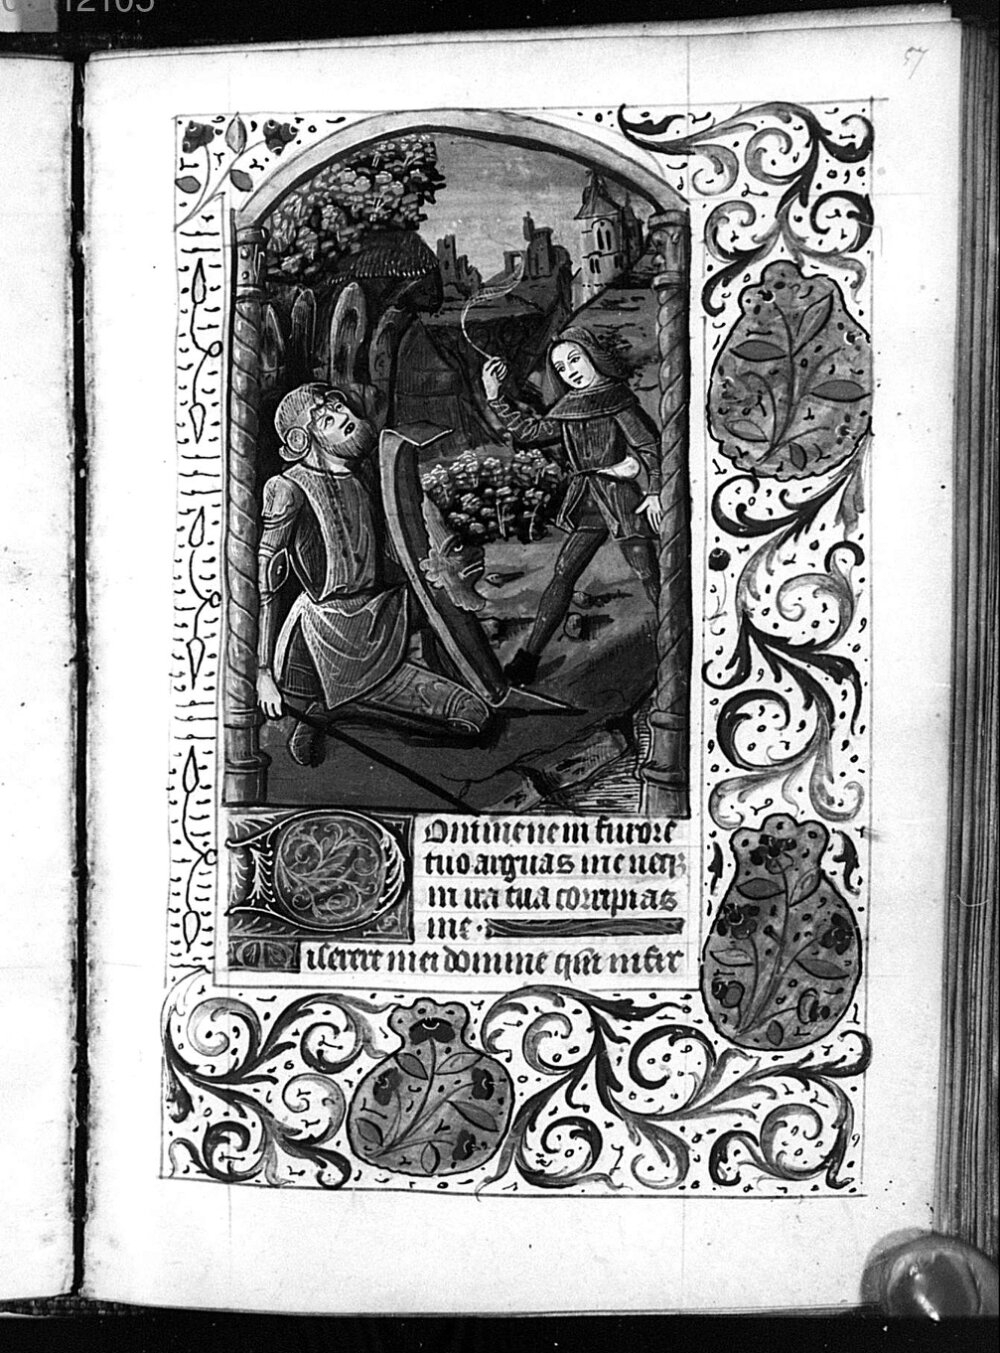 57
Domine ne in furore
tuo arguas me neq;
in ira tua corripias
me.
Miserere mei domine qm̄ infir